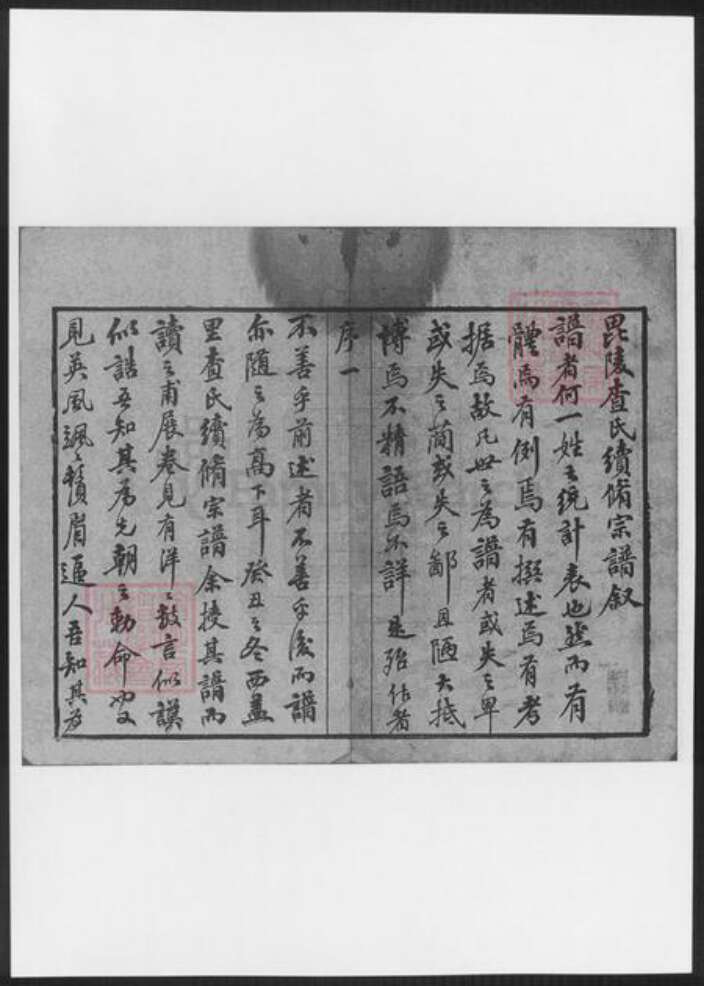 毘陵查氏續脩宗譜叙
譜者何一姓之統計表也然而有
體焉有例焉有撰述焉有考
据焉故凡世之為譜者或失之卑
或失之簡或失之鄙且陋大抵
博焉不精語焉不詳是殆作者
序一
不善乎前述者不善乎後而譜
亦隨之為高下耳癸丑之冬西蓋
里查氏續脩宗譜余授其譜而
讀之甫展卷見有洋之數言似謨
似誥吾知其為先朝之勅命也又
見英風颯之鬚眉逼人吾知其為